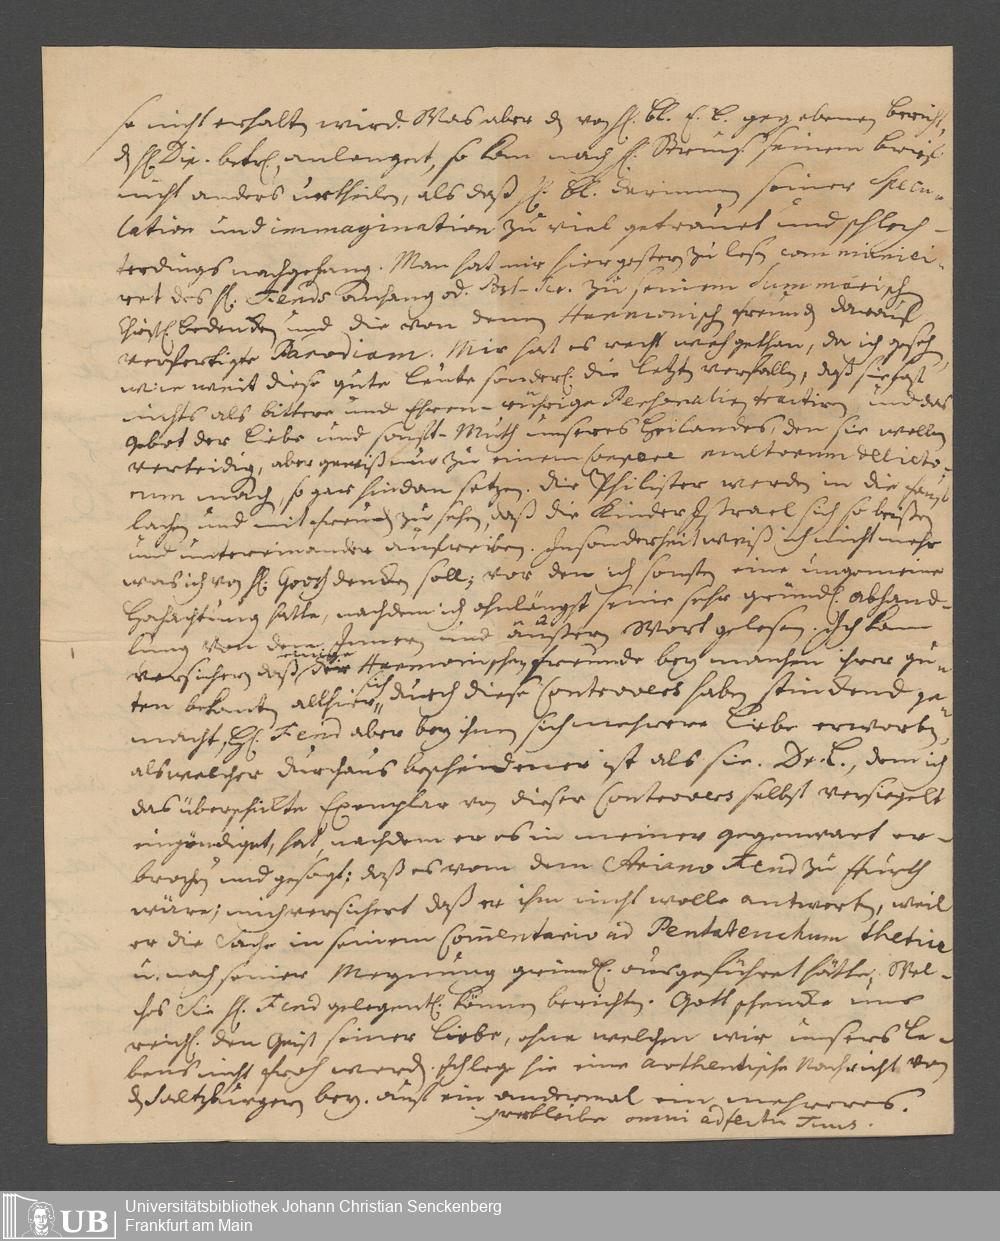 so nicht erhalten wird. Was aber d von H. Bl. E. C. gegebenen bericht,
d H. Die. betr., anlanget, so kan nach H. seinem brief
nicht anders urtheilen, als daß H. Bl. darinnen seiner Specu-
lation und immagination zu viel getrauet und schlech-
terdings nachgehang. Man hat mir hier gestern zu lesen communici-
ret des H. Fends anhang od. Post-Scr. zu seinem Summarisch
Christl. bedencken und die von denen Harmonisch freund darauf
verfertigte Parodiam. Mir hat es recht weh gethan, da ich geseh,
wie weit diese gute leute sonderl. die letzten verfallen, daß sie fast
nichts als bittere und Ehren-rührige Personalien tractiren und das
gebot der liebe und sanft-Muth unseres Heilandes, den sie wollen
verteidig, aber gewiß nur zu einem multorum delicto-
rum mach, so gar hindan setzen. Die Philister werden in die faust
lachen und mit freud zu sehen, daß die Kinder Israel sich so beißen
und untereinander aufreiben. Insonderheit weiß ich nicht mehr
was ich von H. Groß dencken soll; vor den ich sonsten eine ungemeine
Hochachtung hatte, nachdem ich ohnlängst seine sehr gründl. abhand-
lung von dem Innern und äußern Wort gelesen. Ich kan
versichern daß einige der Harmonischen freunde bey manchen ihrer gu-
ten bekanten allhier sich durch diese Controvers haben stinckend ge-
macht, H. Fend aber bey ihnen sich mehrere liebe erworben,
als welcher durchaus bescheidener ist als sie. Dr. L., dem ich
das überschickte Exemplar von dieser Controvers selbst versiegelt
eingehändiget, hat nachdem er es in meiner gegenwart er-
brochen und gesagt; daß es von dem Ariano Fend zu ffurth
wäre; mich versichert daß er ihm nicht wolle antworten, weil
er die Sache in seinem Com̄entario ad Pentateuchum thetice
u. nach seiner Meynung gründl. ausgeführet hätte; Wel-
ches Sie H. Fend gelegentl. können berichten. Gott schencke uns
reichl. den Geist seiner liebe, ohne welchen wir unsers le-
bens nicht froh werden. Schlege hie eine authentische Nachricht von
d Saltzburgern bey. auf ein andermal ein mehreres.
verbleibe omni adfectu Tuus.
Universitätsbibliothek Johann Christian Senckenberg
Frankfurt am Main
UB